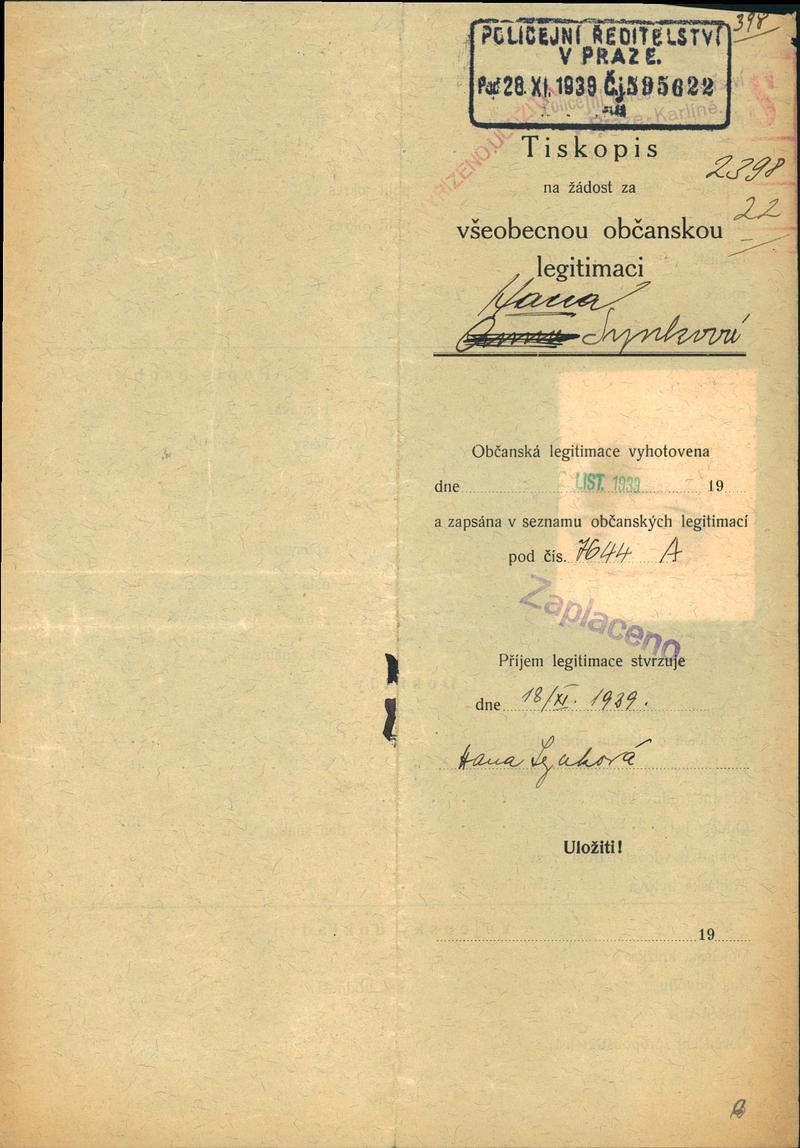 398
POLICEJNÍ ŘEDITELSTVÍ
V PRAZE.
28. XI. 1939 Čj. 595622
Praze-Karlíně.
Tiskopis
2398
na žádost za
22
všeobecnou občanskou
legitimaci
Hana
Synková
Občanská legitimace vyhotovena
dne LIST. 1939 19
a zapsána v seznamu občanských legitimací
pod čís. 7644 A
Zaplaceno
Příjem legitimace stvrzuje
dne 18/XI. 1939.
Hana Synková
Uložiti!
19